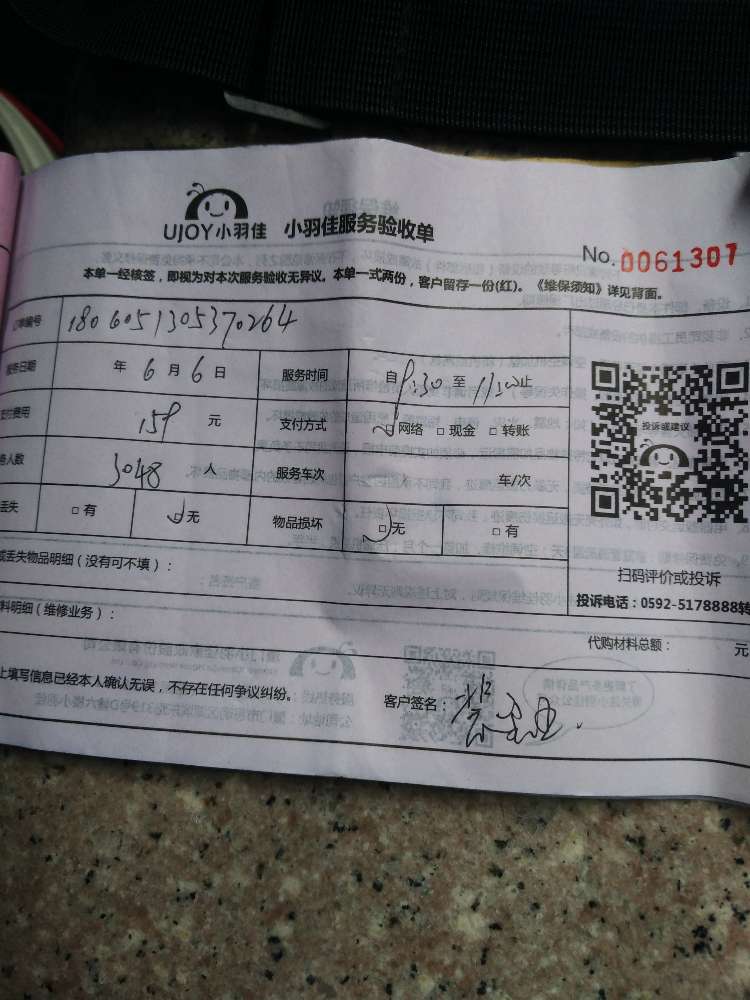 UJOY小羽佳 小羽佳服务验收单
No. 0061307
本单一经核签,即视为对本次服务验收无异议。本单一式两份,客户留存一份(红)。《维保须知》详见背面。
订单编号 1806051305370264
服务日期 年 6 月 6 日 服务时间 自 9:30 至 11:30 止
支付费用 159 元 支付方式 □ 网络 □ 现金 □ 转账
务人数 3048 人 服务车次 车/次
丢失 □ 有 □ 无 物品损坏 □ 无 □ 有
投诉或建议
扫码评价或投诉
投诉电话:0592-5178888转
或丢失物品明细(没有可不填):
料明细(维修业务): 代购材料总额: 元
上填写信息已经本人确认无误,不存在任何争议纠纷。 客户签名: